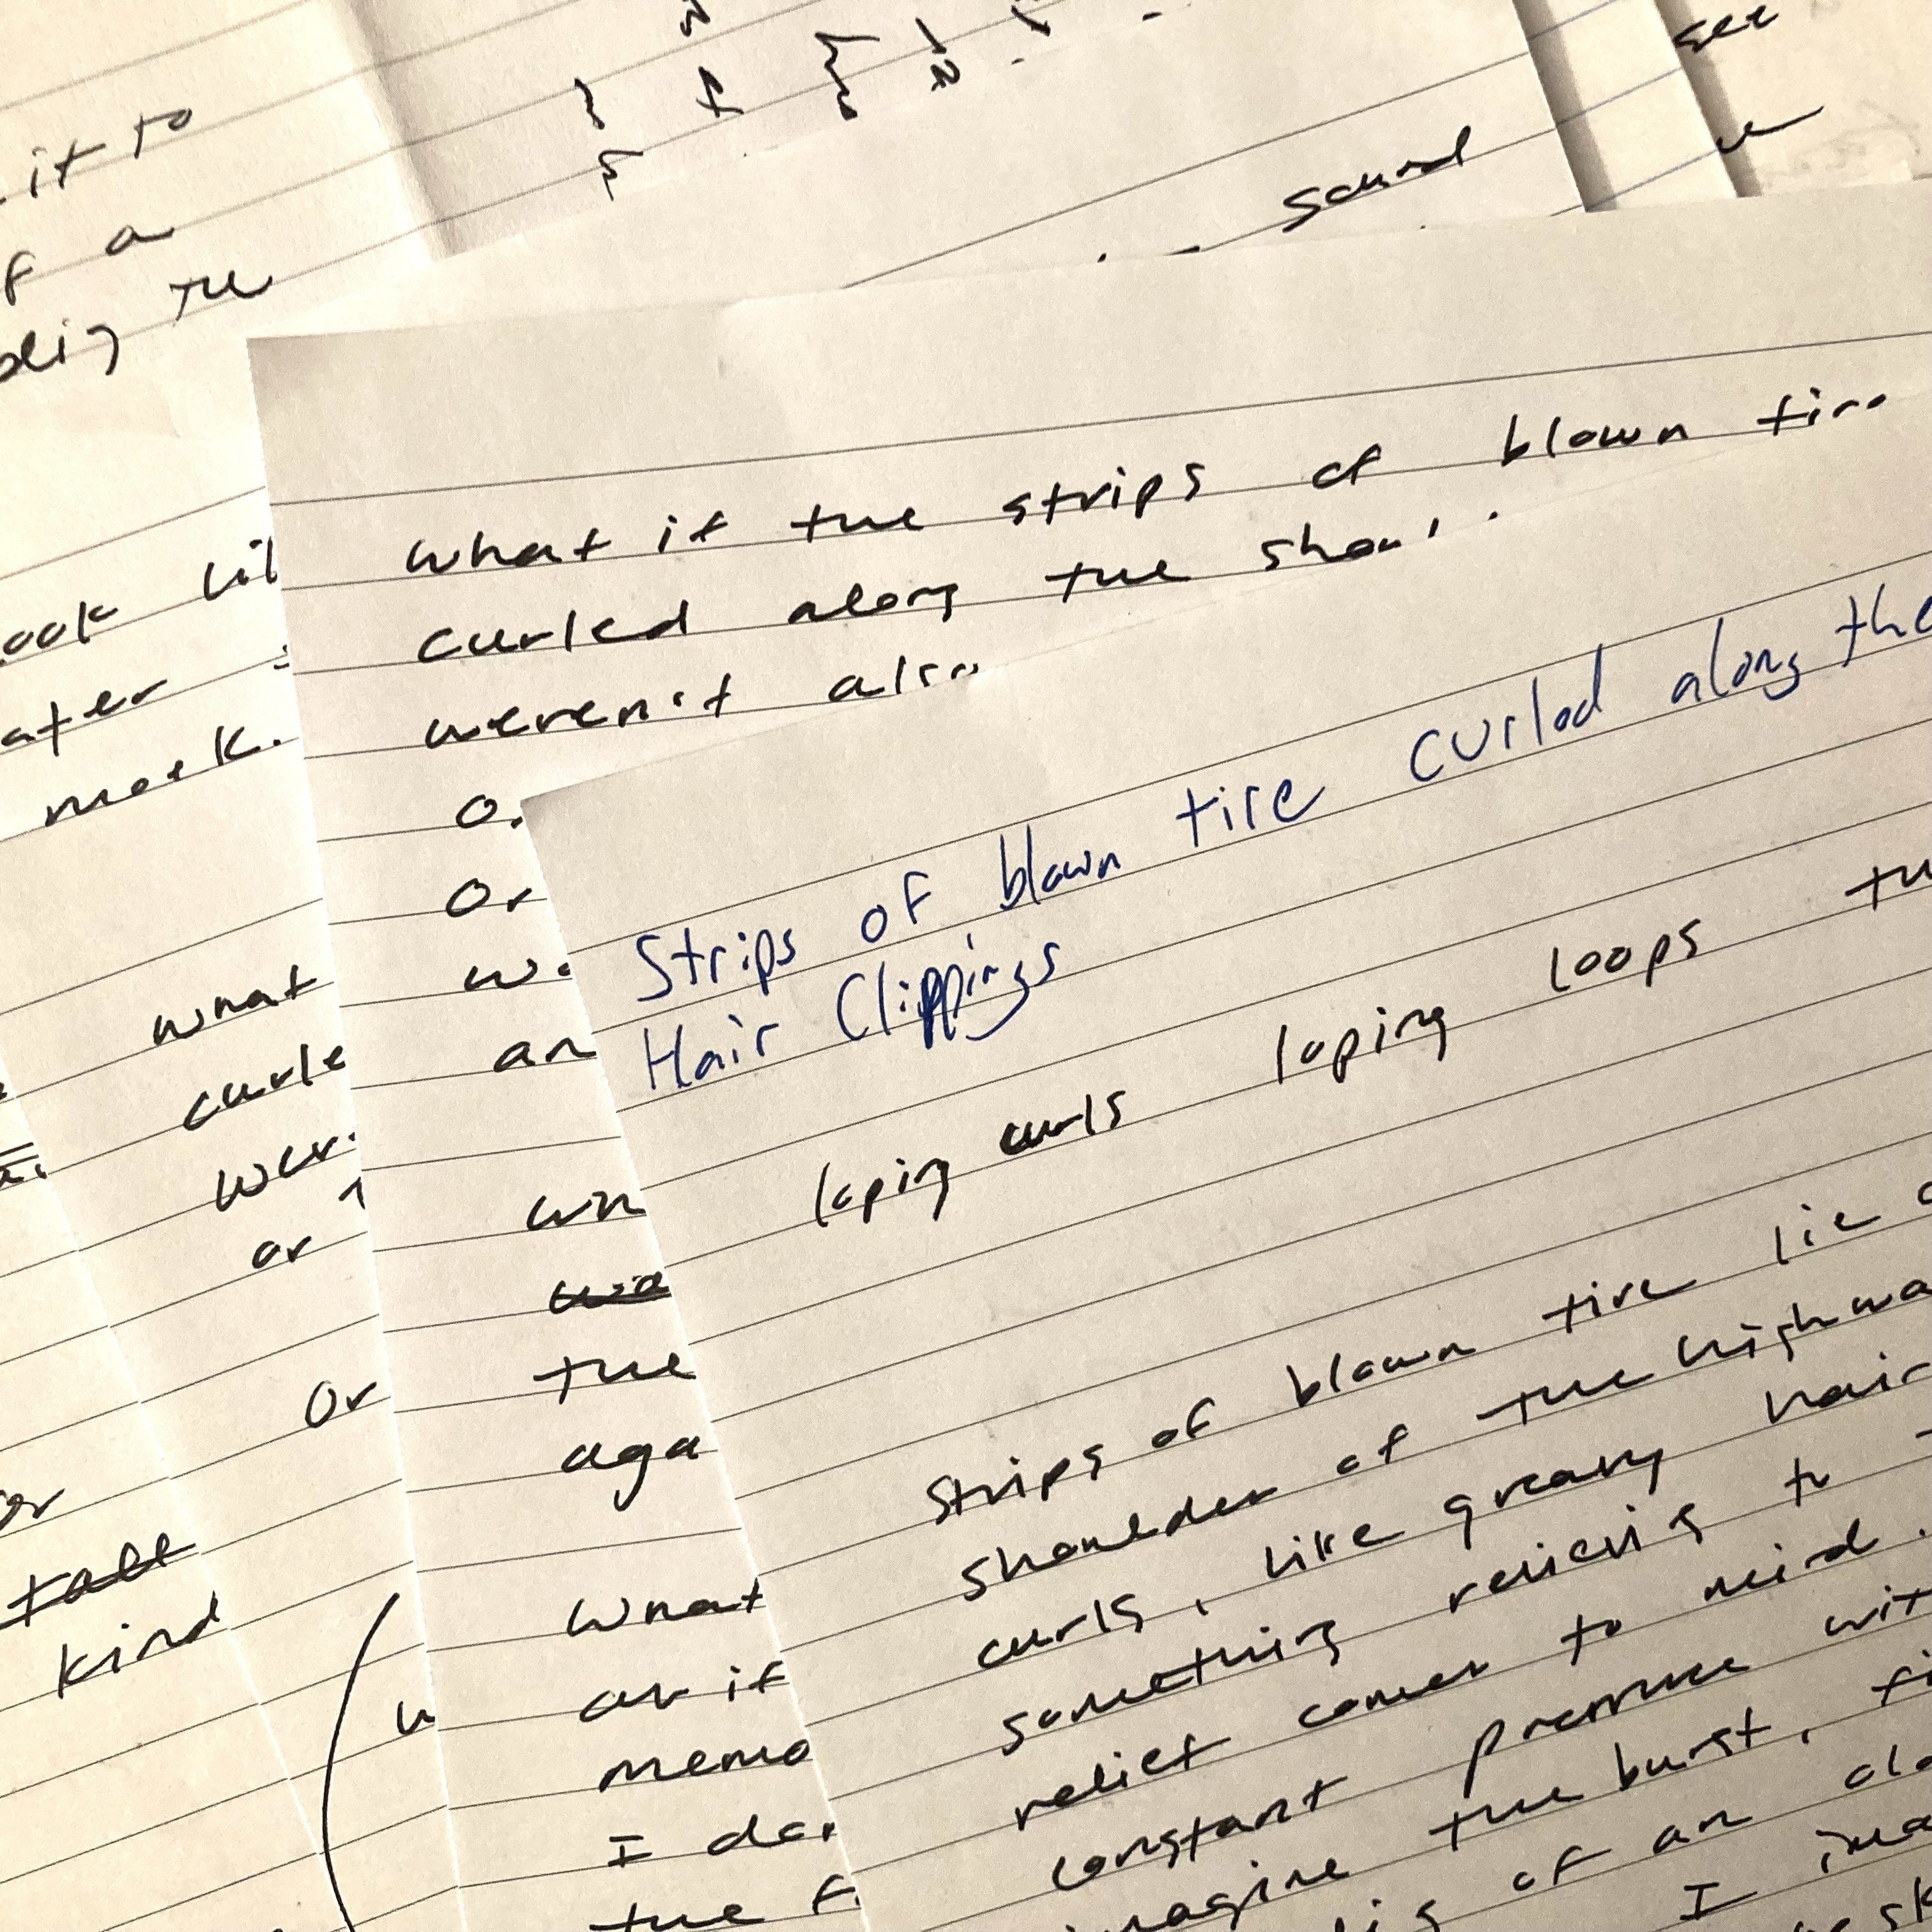 it to
a
the
sound
see
ook
ater
meek.
what
curle
or
Or
or
tall
kind
what if the strips of blown tire
curled along the
weren't also
Or
an
the
aga
what
as if
memo
I
the
Strips of blown tire curled along the
Hair Clippings
loping curls loping loops
Strips of blown tire lie
shoulder of the highwa
curls, like greasy hair
something relieving to
relief comes to mind.
constant pressure wit
imagine the burst,
of an old
I